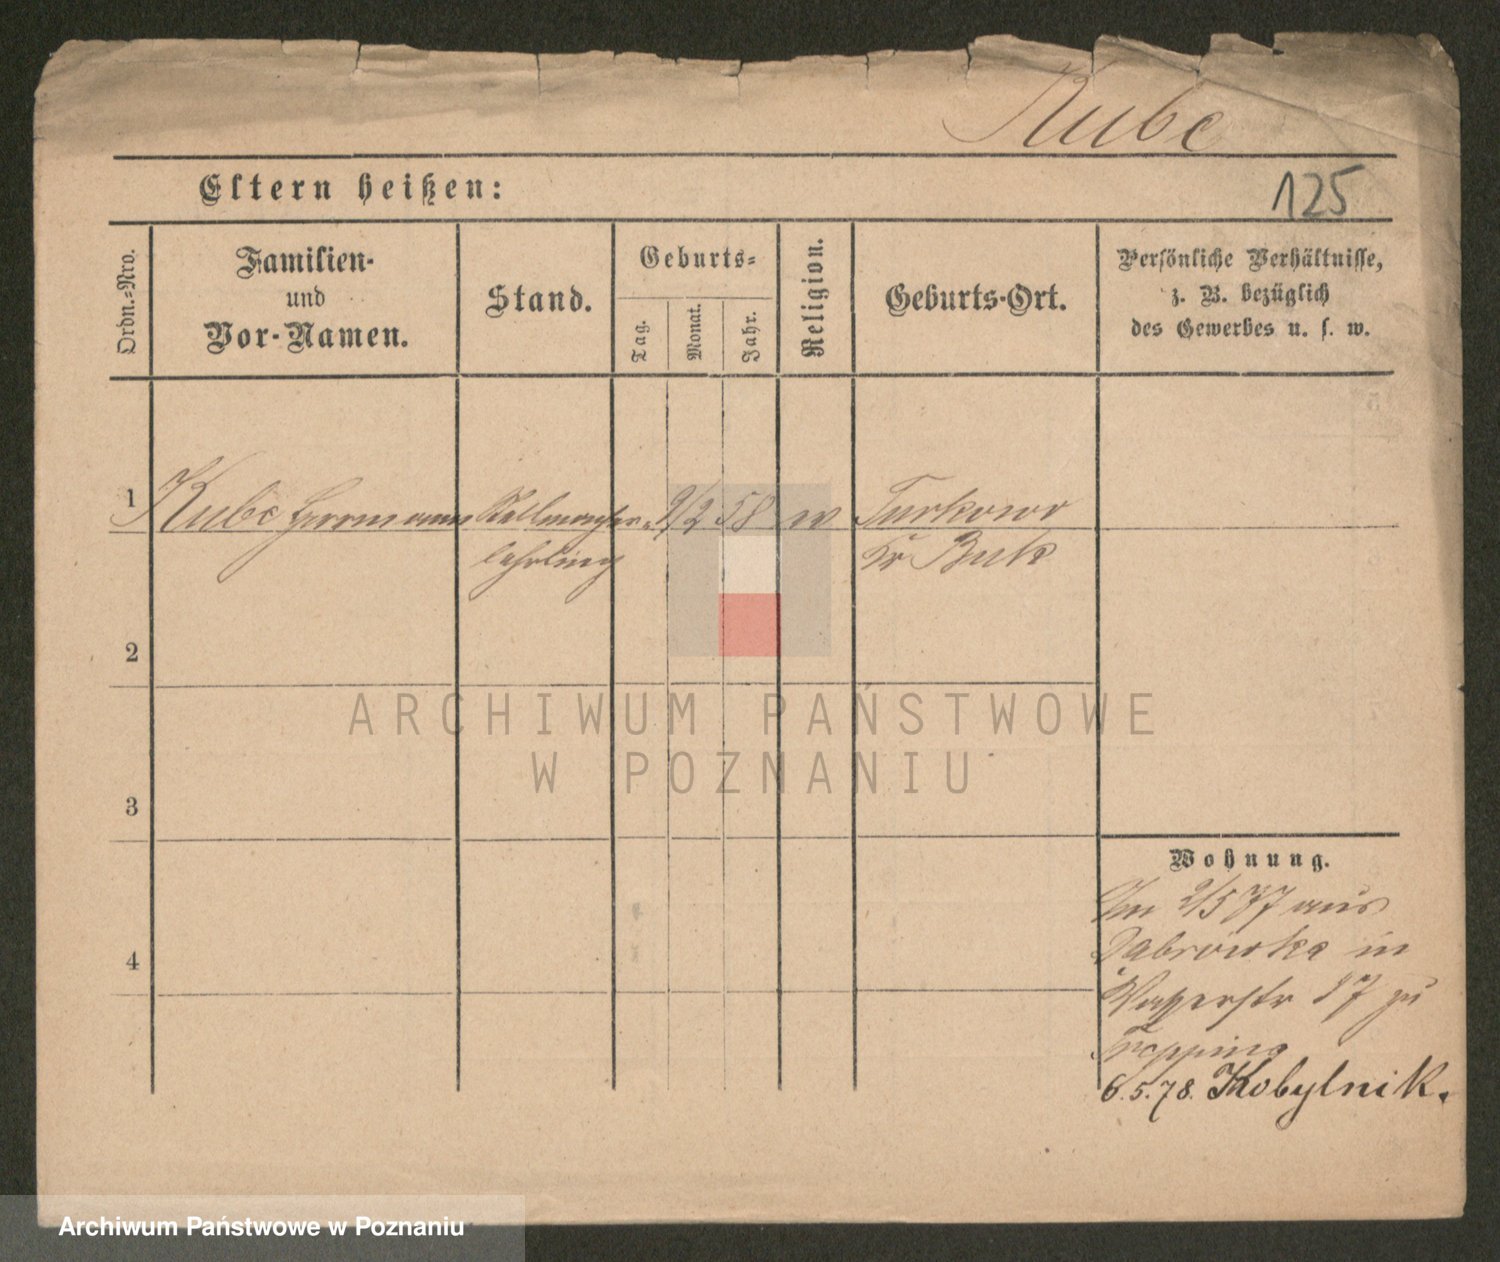 Kube
Eltern heißen:
125
Ordn.-Nro.
Familien-
und
Vor-Namen.
Stand.
Geburts-
Tag.
Monat.
Jahr.
Religion.
Geburts-Ort.
Persönliche Verhältnisse,
z. B. bezüglich
des Gewerbes u. s. w.
1
Kube Herrmann
Stellmacher-
lehrling
9/2 58
Turkowo
Kr Buk
2
3
4
ARCHIWUM PAŃSTWOWE
W POZNANIU
Wohnung.
2/5 77 aus
Dabrowka in
Wasserstr 17 zu
6.5.78. Kobylnik.
Archiwum Państwowe w Poznaniu